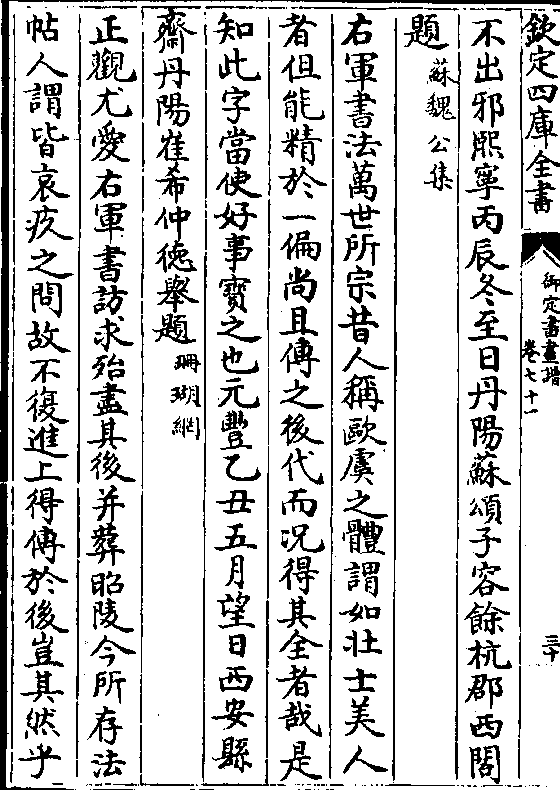 欽定四庫全書
御定書畫譜
卷七十一
三十
不出邪熙寧丙辰冬至日丹陽蘇頌子容餘杭郡西閣
題蘇魏公集
右軍書法萬世所宗昔人稱歐虞之體謂如壯士美人
者但能精於一偏尚且傳之後代而况得其全者哉是
知此字當使好事寳之也元豐乙丑五月望日西安縣
齋丹陽崔希仲徳舉題珊瑚網
正觀尤愛右軍書訪求殆盡其後并葬昭陵今所存法
帖人謂皆哀疚之問故不復進上得傳於後豈其然乎